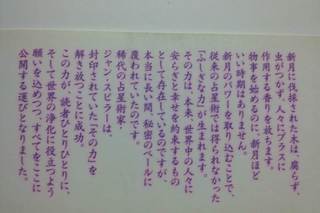 新月に伐採された木は腐らず、
虫がつかず、人々にプラスに
作用する香りを放ちます。
物事を始めるのに、新月ほど
いい時期はありません。
新月のパワーを取り込むことで、
従来の占星術では得られなかった
「ふしぎな力」が生まれます。
その力は、本来、世界中の人々に
安らぎと幸せを約束するもの
として存在しているのですが、
本当に長い間、秘密のベールに
覆われていたのです。
稀代の占星術家・
ジャン・スピラーは、
封印されていた「その力」を
解き放つことに成功。
この力が、読者ひとりひとりに、
そして世界の浄化に役立つよう
願いを込めつつ、すべてをここに
公開する運びとなりました。